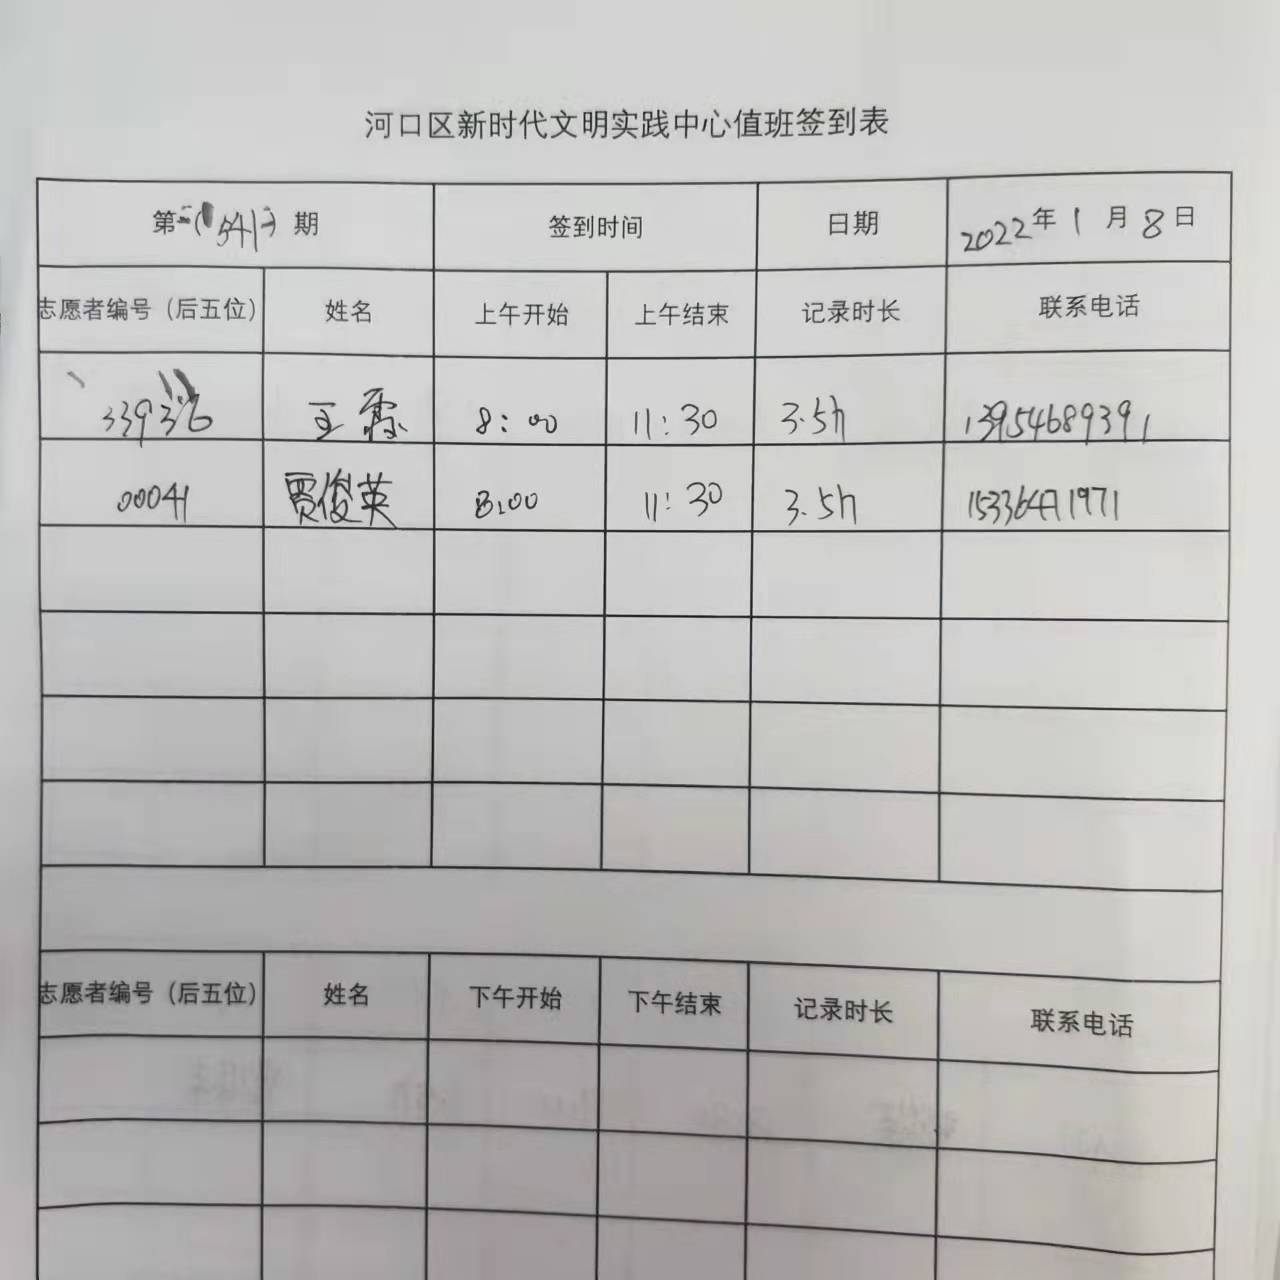 河口区新时代文明实践中心值班签到表
第 541 期 签到时间 日期 2022年1月8日
志愿者编号（后五位） 姓名 上午开始 上午结束 记录时长 联系电话
王霞 8:00 11:30 3.5h 13954689391
00041 贾俊英 8:00 11:30 3.5h 15336471971
志愿者编号（后五位） 姓名 下午开始 下午结束 记录时长 联系电话